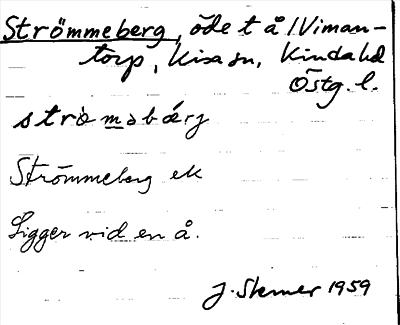 Strömmeberg, öde t å /Viman-
torp, Kisa sn, Kinda hd
Östg. l.
strömabärj
Strömmeberg ek
Ligger vid en å.
J. Sterner 1959